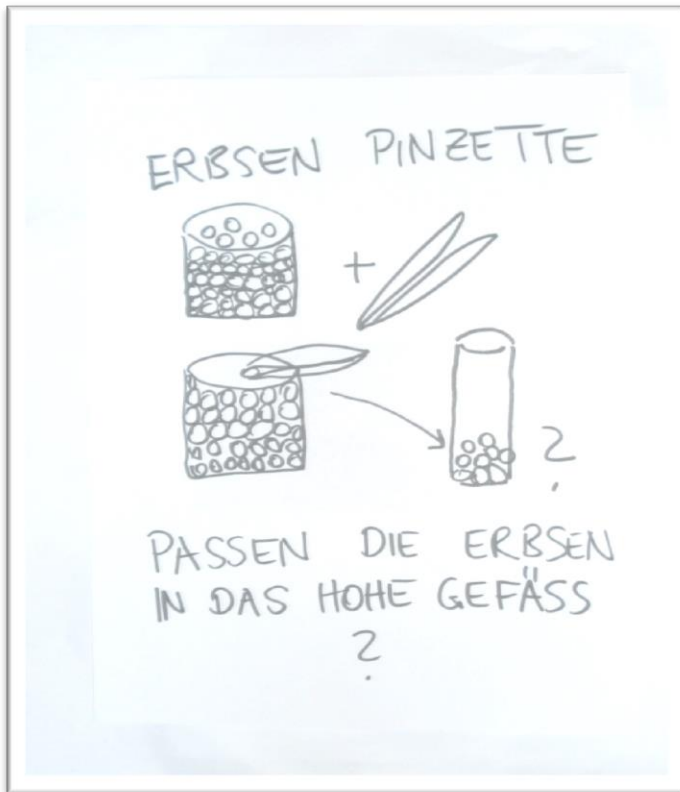 ERBSEN PINZETTE
+
?
PASSEN DIE ERBSEN
IN DAS HOHE GEFÄSS
?